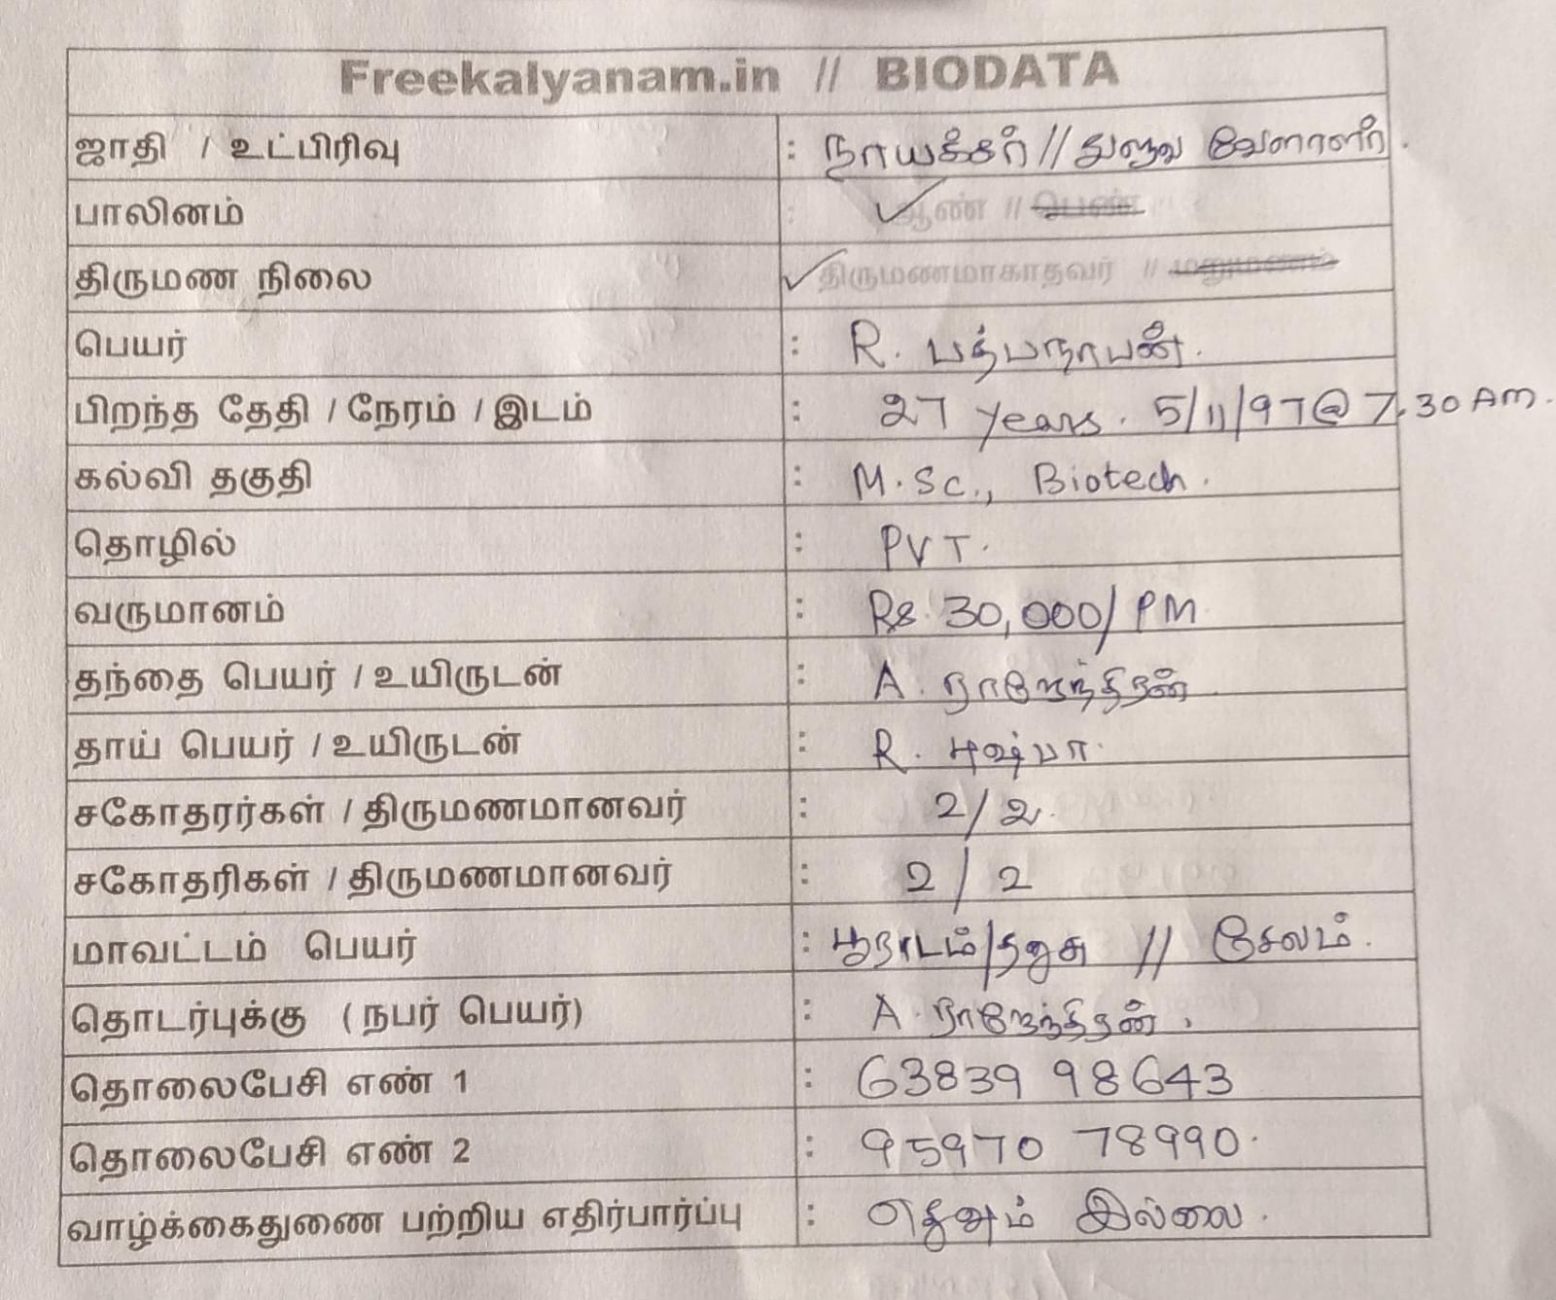 Freekalyanam.in // BIODATA
ஜாதி / உட்பிரிவு : நாயக்கர் // துளுவ வேளாளர்.
பாலினம் : ஆண் // பெண்
திருமண நிலை திருமணமாகாதவர் // மறுமணம்
பெயர் : R. பத்மநாபன்.
பிறந்த தேதி / நேரம் / இடம் : 27 years. 5/11/97@7.30 AM.
கல்வி தகுதி : M.Sc., Biotech.
தொழில் : PVT.
வருமானம் : Rs. 30,000/ PM
தந்தை பெயர் / உயிருடன் : A. ராஜேந்திரன்
தாய் பெயர் / உயிருடன் : R. புஷ்பா
சகோதரர்கள் / திருமணமானவர் : 2/2.
சகோதரிகள் / திருமணமானவர் : 2 / 2
மாவட்டம் பெயர் : பூராடம்/தனுசு // சேலம்.
தொடர்புக்கு ( நபர் பெயர்) : A. ராஜேந்திரன்.
தொலைபேசி எண் 1 : 63839 98643
தொலைபேசி எண் 2 : 95970 78990.
வாழ்க்கைதுணை பற்றிய எதிர்பார்ப்பு : எதுவும் இல்லை.